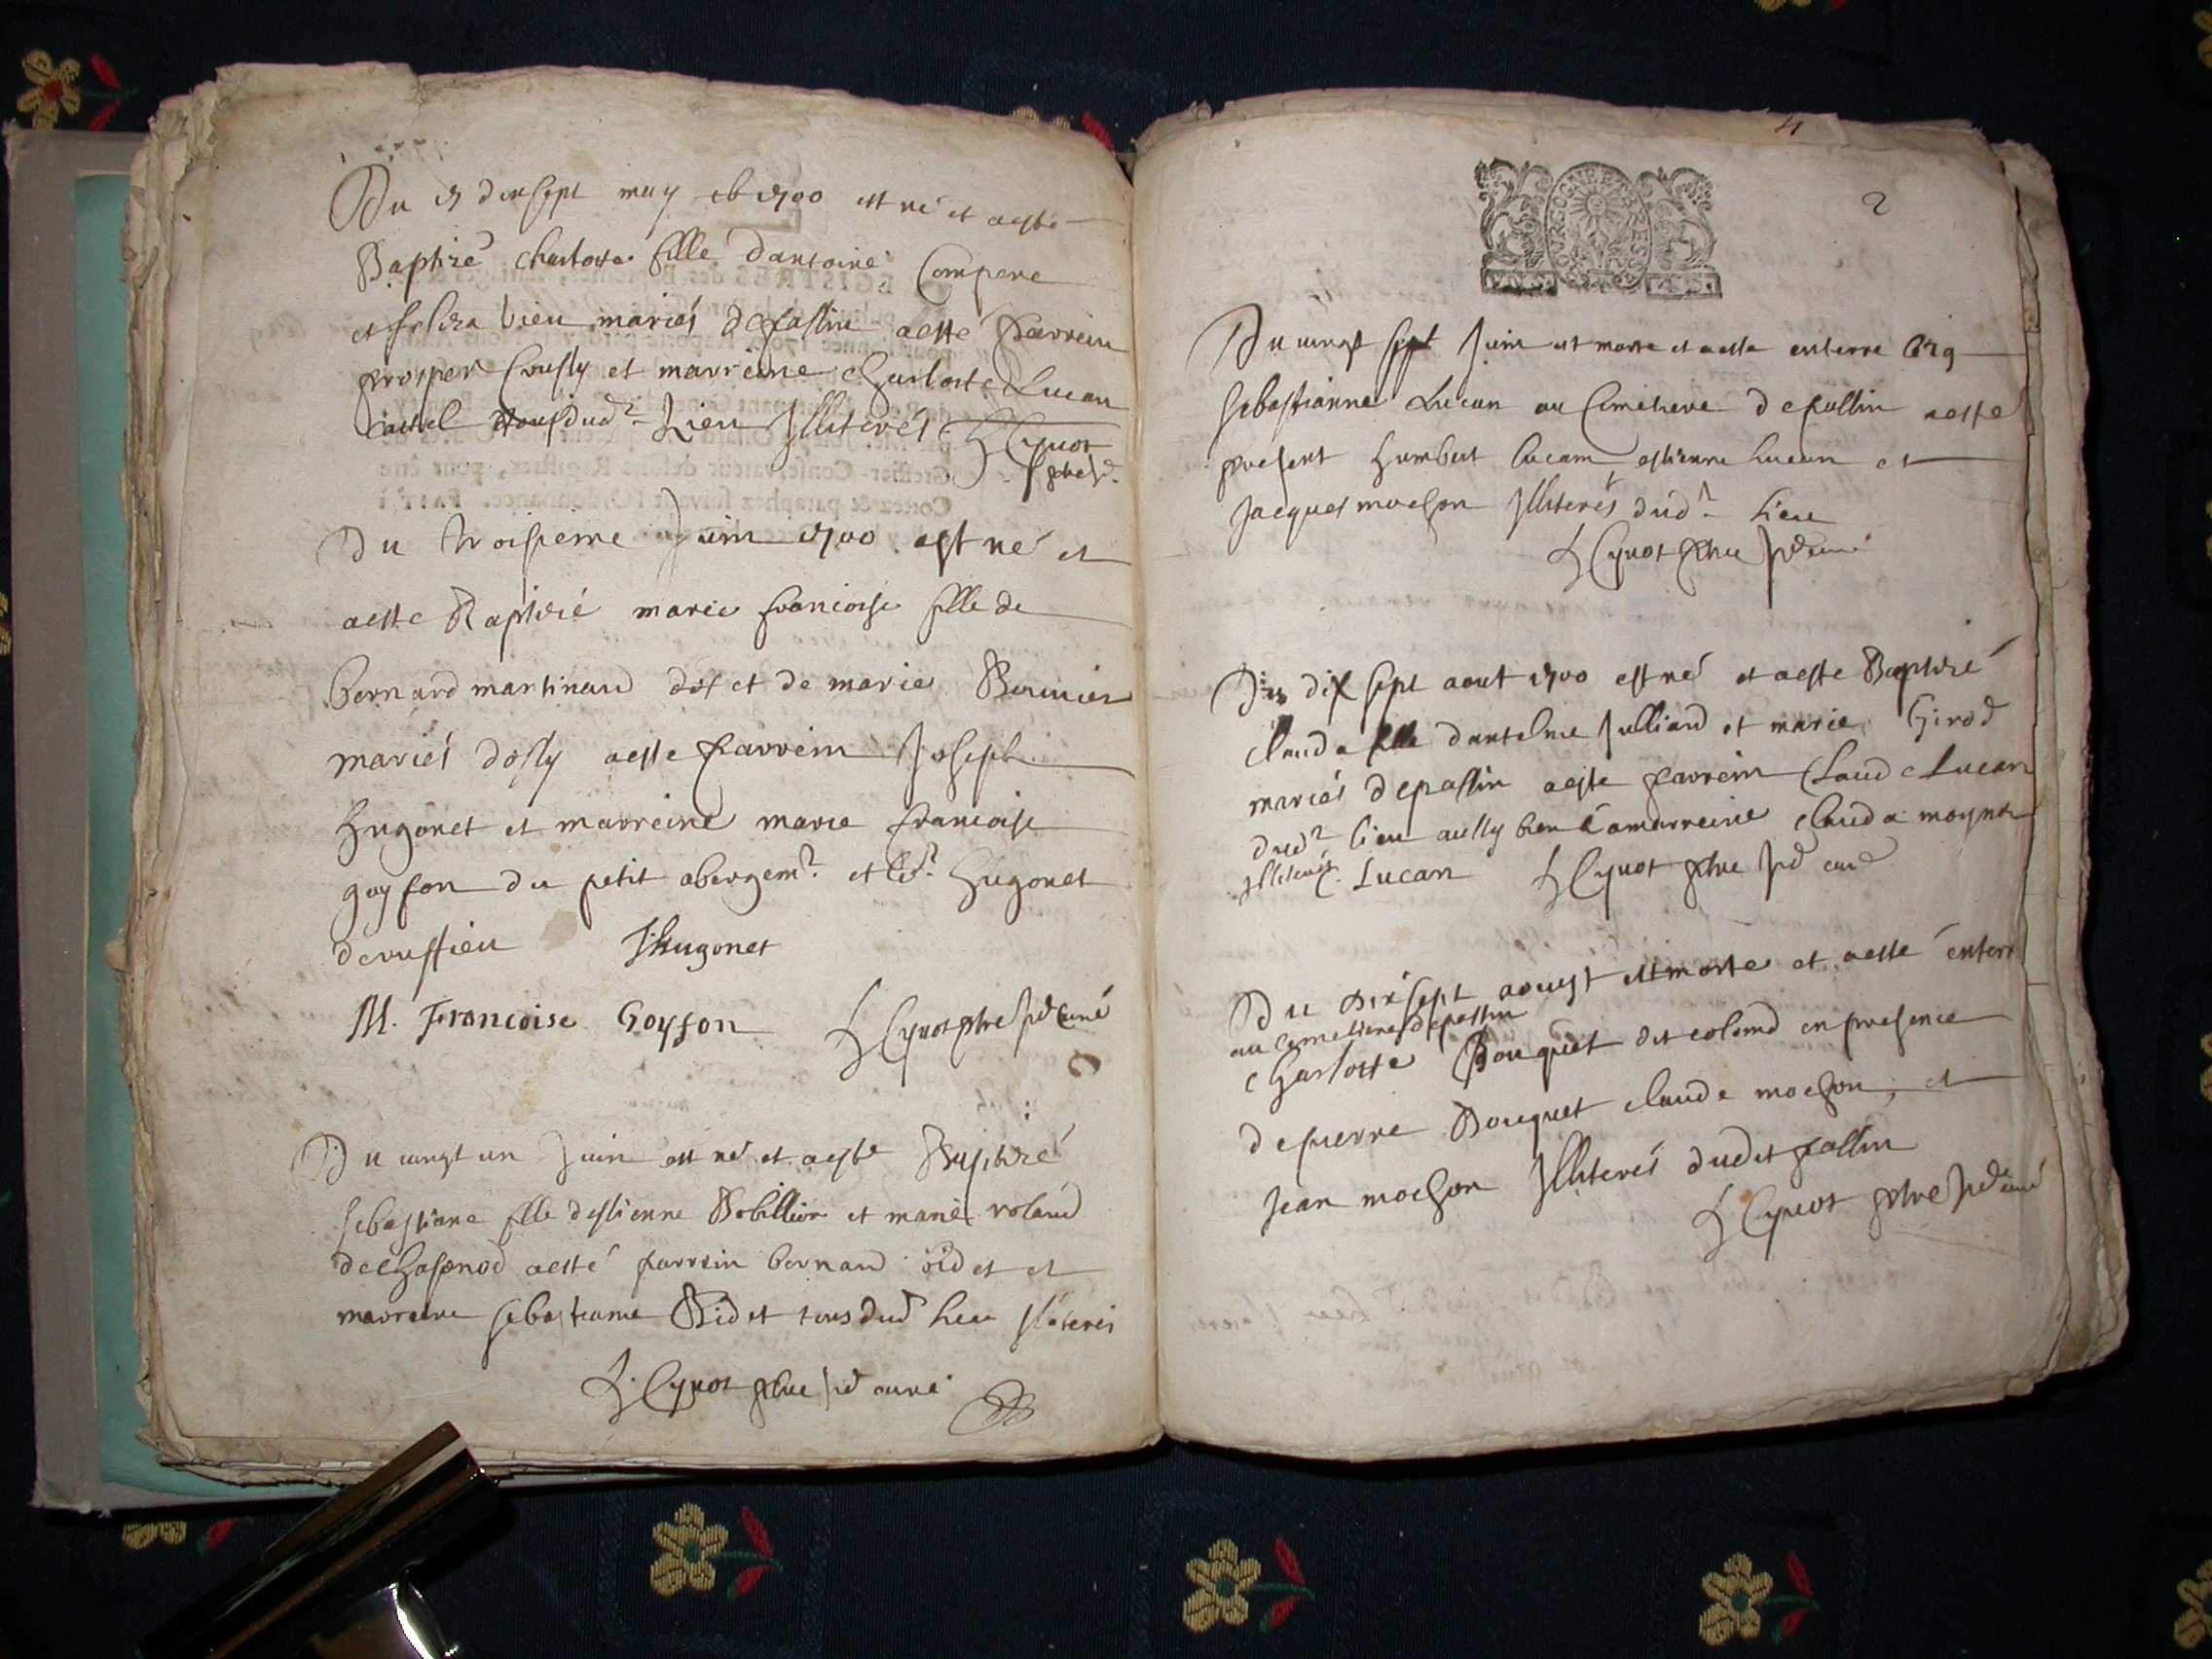 Du 17 dixsept may 1700 est né et aesté
Baptizé charlotte fille dantoine Compere
et vieu mariés depassin aesté parrein
prosper et marreine charlotte Lucan
tousdud? Lieu Illiterés L Cynot
ptre
Du troisieme Juin 1700 est né et
aesté Baptizé marie francoise fille de
bernard martinand dit et de marie Bernier
mariés dossy aesté parrein Joseph
hugonet et marreine marie francoise
goyfon du petit abergem? et led? hugonet
deruffieu J hugonet
M. Francoise Goyfon L Cynot ptre curé
Du vingt un Juin est né et aesté Baptizé
sebastiane fille destienne Bobillion et marie roland
dechasonod aesté parrein bernard bidet et
marreine sebastianne Bidet tous dud lieu Illiterés
L. Cynot ptre jd curé
4
2
BOURGOGNE BRESSE
Du vingt sept Juin est morte et aesté enterré
sebastianne Lucan au Cimetiere depassin aesté
present humbert lucam estienne lucan et
Jacques mochon Illiterés dud? Lieu
L Cynot ptre jd curé
Du dix sept aout 1700 est né et aesté Baptizé
clauda fille dantelme Julliard et marie Girod
mariés depassin aesté parrein Claude Lucan
dud? lieu aussy bien marreine clauda
Illiterés C. Lucan L Cynot ptre jd curé
Du Dixsept aoust est morte et aesté enterr
au cemetiere depassin
charlotte Bouquet dit colomd en presence
depierre Bouquet claude mochon, et
Jean mochon Illiterés dudit passin
L Cynot ptre jd curé